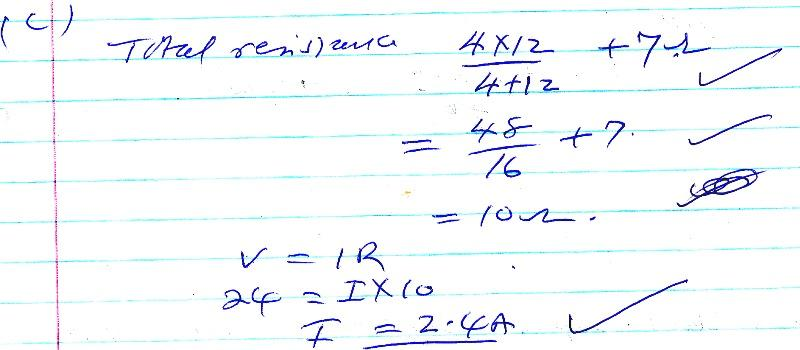 (c)
Total resistance 4×12/4+12 + 7Ω
= 48/16 + 7.
= 10Ω.
V = IR
24 = I×10
I = 2.4A